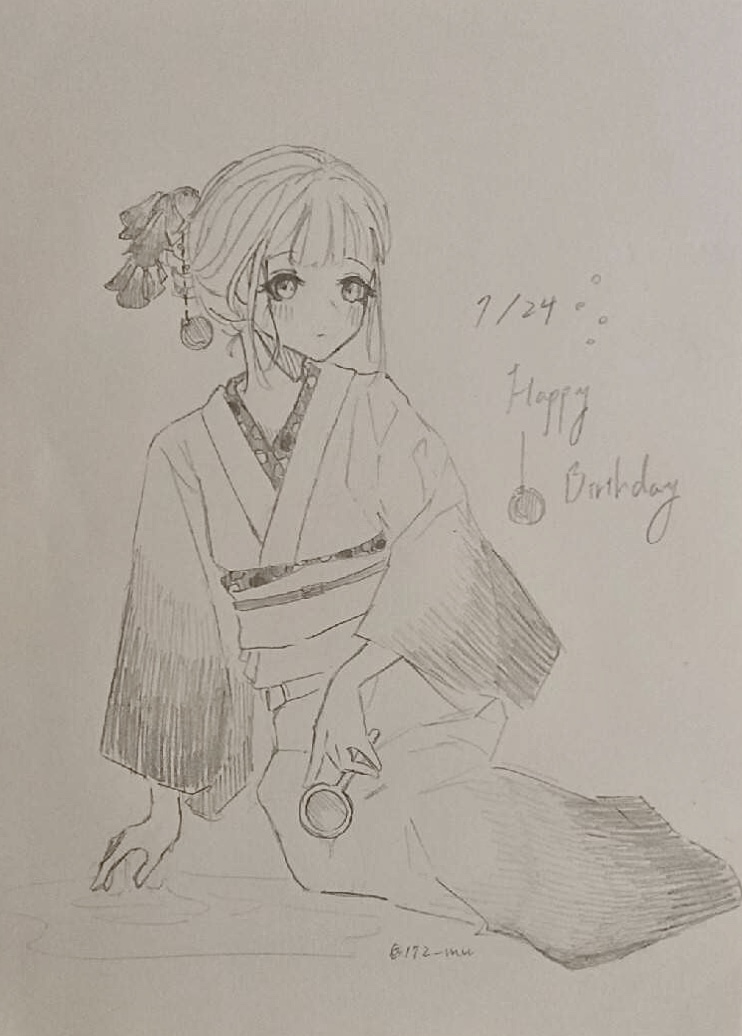 7/24
Happy
Birthday
@172_mu